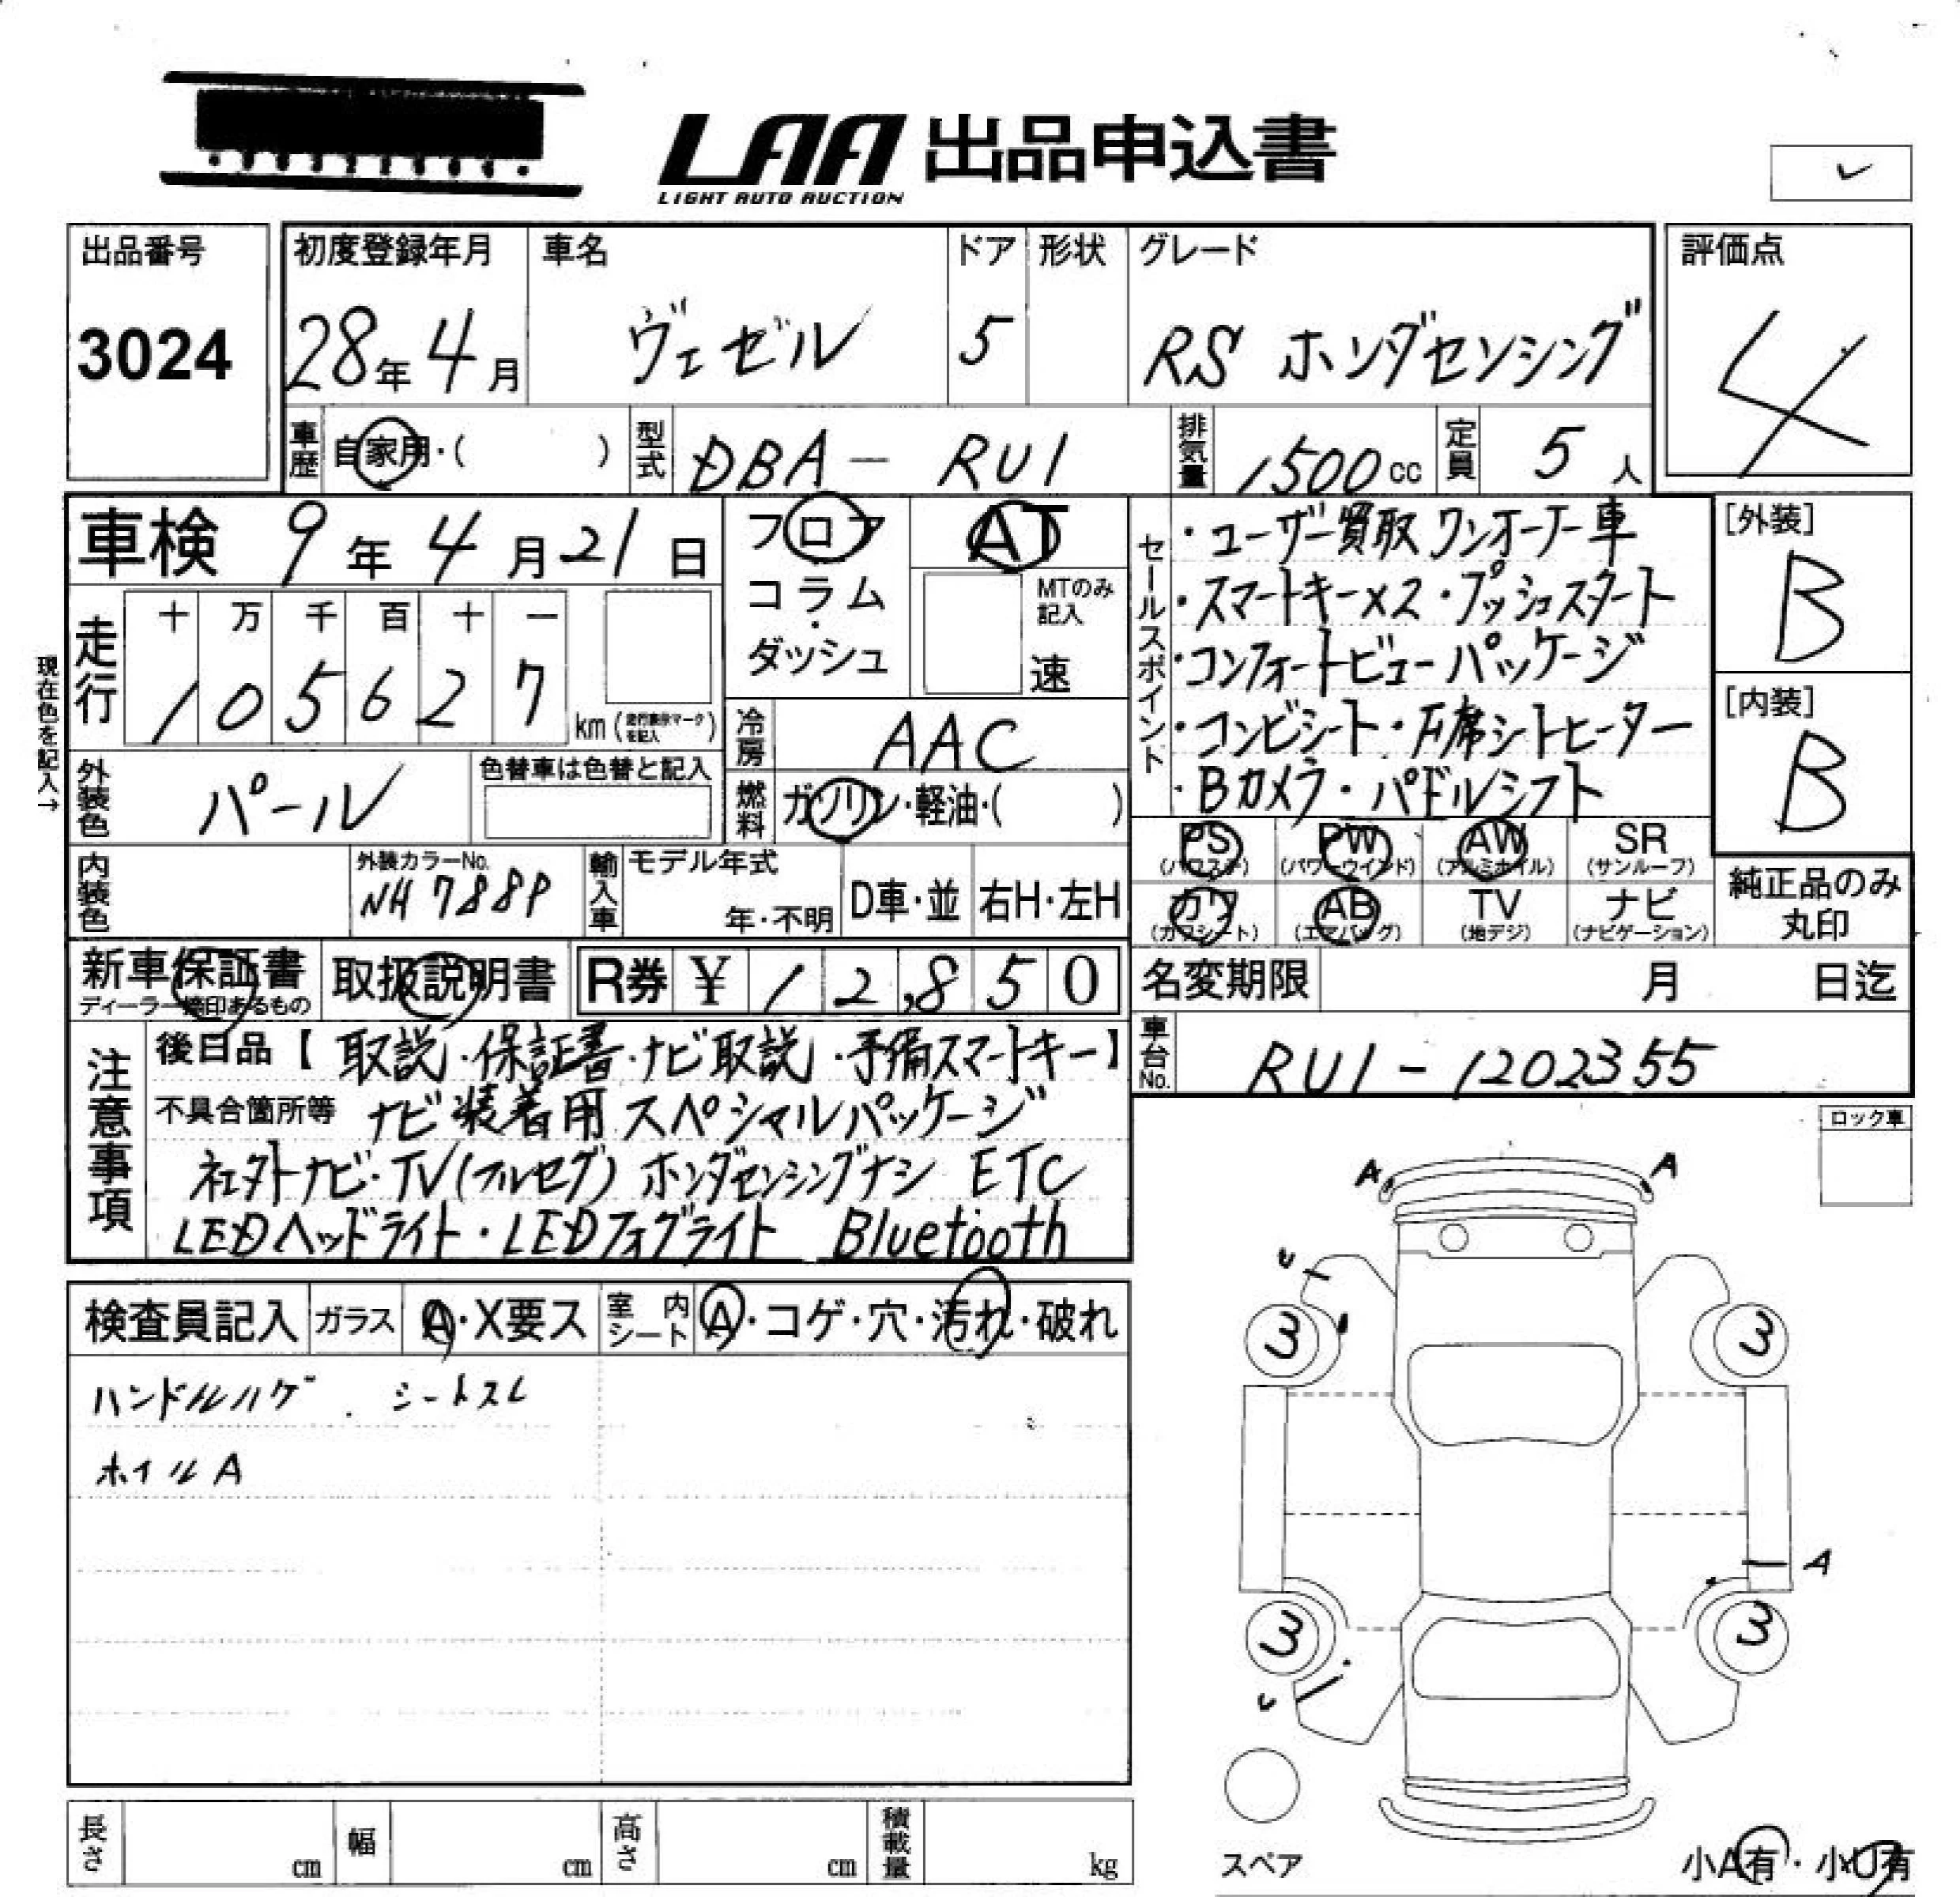 LAA 出品申込書
LIGHT AUTO AUCTION
出品番号
3024
初度登録年月
28年4月
車名
ヴェゼル
ドア
5
形状
グレード
RS ホンダセンシング
評価点
4
車歴 自家用・( )
型式 DBA - RU1
排気量 1500cc
定員 5人
車検 9年4月21日
フロア
コラム・ダッシュ
AT
MTのみ記入
速
セールスポイント
・ユーザー買取 ワンオーナー車
・スマートキー×2・プッシュスタート
・コンフォートビューパッケージ
・コンビシート・F席シートヒーター
・Bカメラ・パドルシフト
[外装]
B
[内装]
B
現在色を記入→
走行
十 万 千 百 十 一
1 0 5 6 2 7 km
冷房 AAC
外装色 パール
色替車は色替と記入
燃料 ガソリン・軽油・( )
内装色
外装カラーNo.
NH788P
輸入車
モデル年式
年・不明
D車・並
右H・左H
PS (パワステ)
PW (パワーウインド)
AW (アルミホイル)
SR (サンルーフ)
カワ (カワシート)
AB (エアバッグ)
TV (地デジ)
ナビ (ナビゲーション)
純正品のみ丸印
新車保証書
ディーラー捺印あるもの
取扱説明書
R券 ¥ 12,850
名変期限 月 日迄
車台No. RU1-1202355
注意事項
後日品【取説・保証書・ナビ取説・予備スマートキー】
不具合箇所等 ナビ装着用スペシャルパッケージ
社外ナビ・TV(フルセグ) ホンダセンシングナシ ETC
LEDヘッドライト・LEDフォグライト Bluetooth
ロック車
検査員記入
ガラス A・X要ス
室内シート A・コゲ・穴・汚れ・破れ
ハンドルハゲ . シートスレ
ホイルA
A A
3 3
A
3 3
スペア
小A有・小U有
長さ cm
幅 cm
高さ cm
積載量 kg